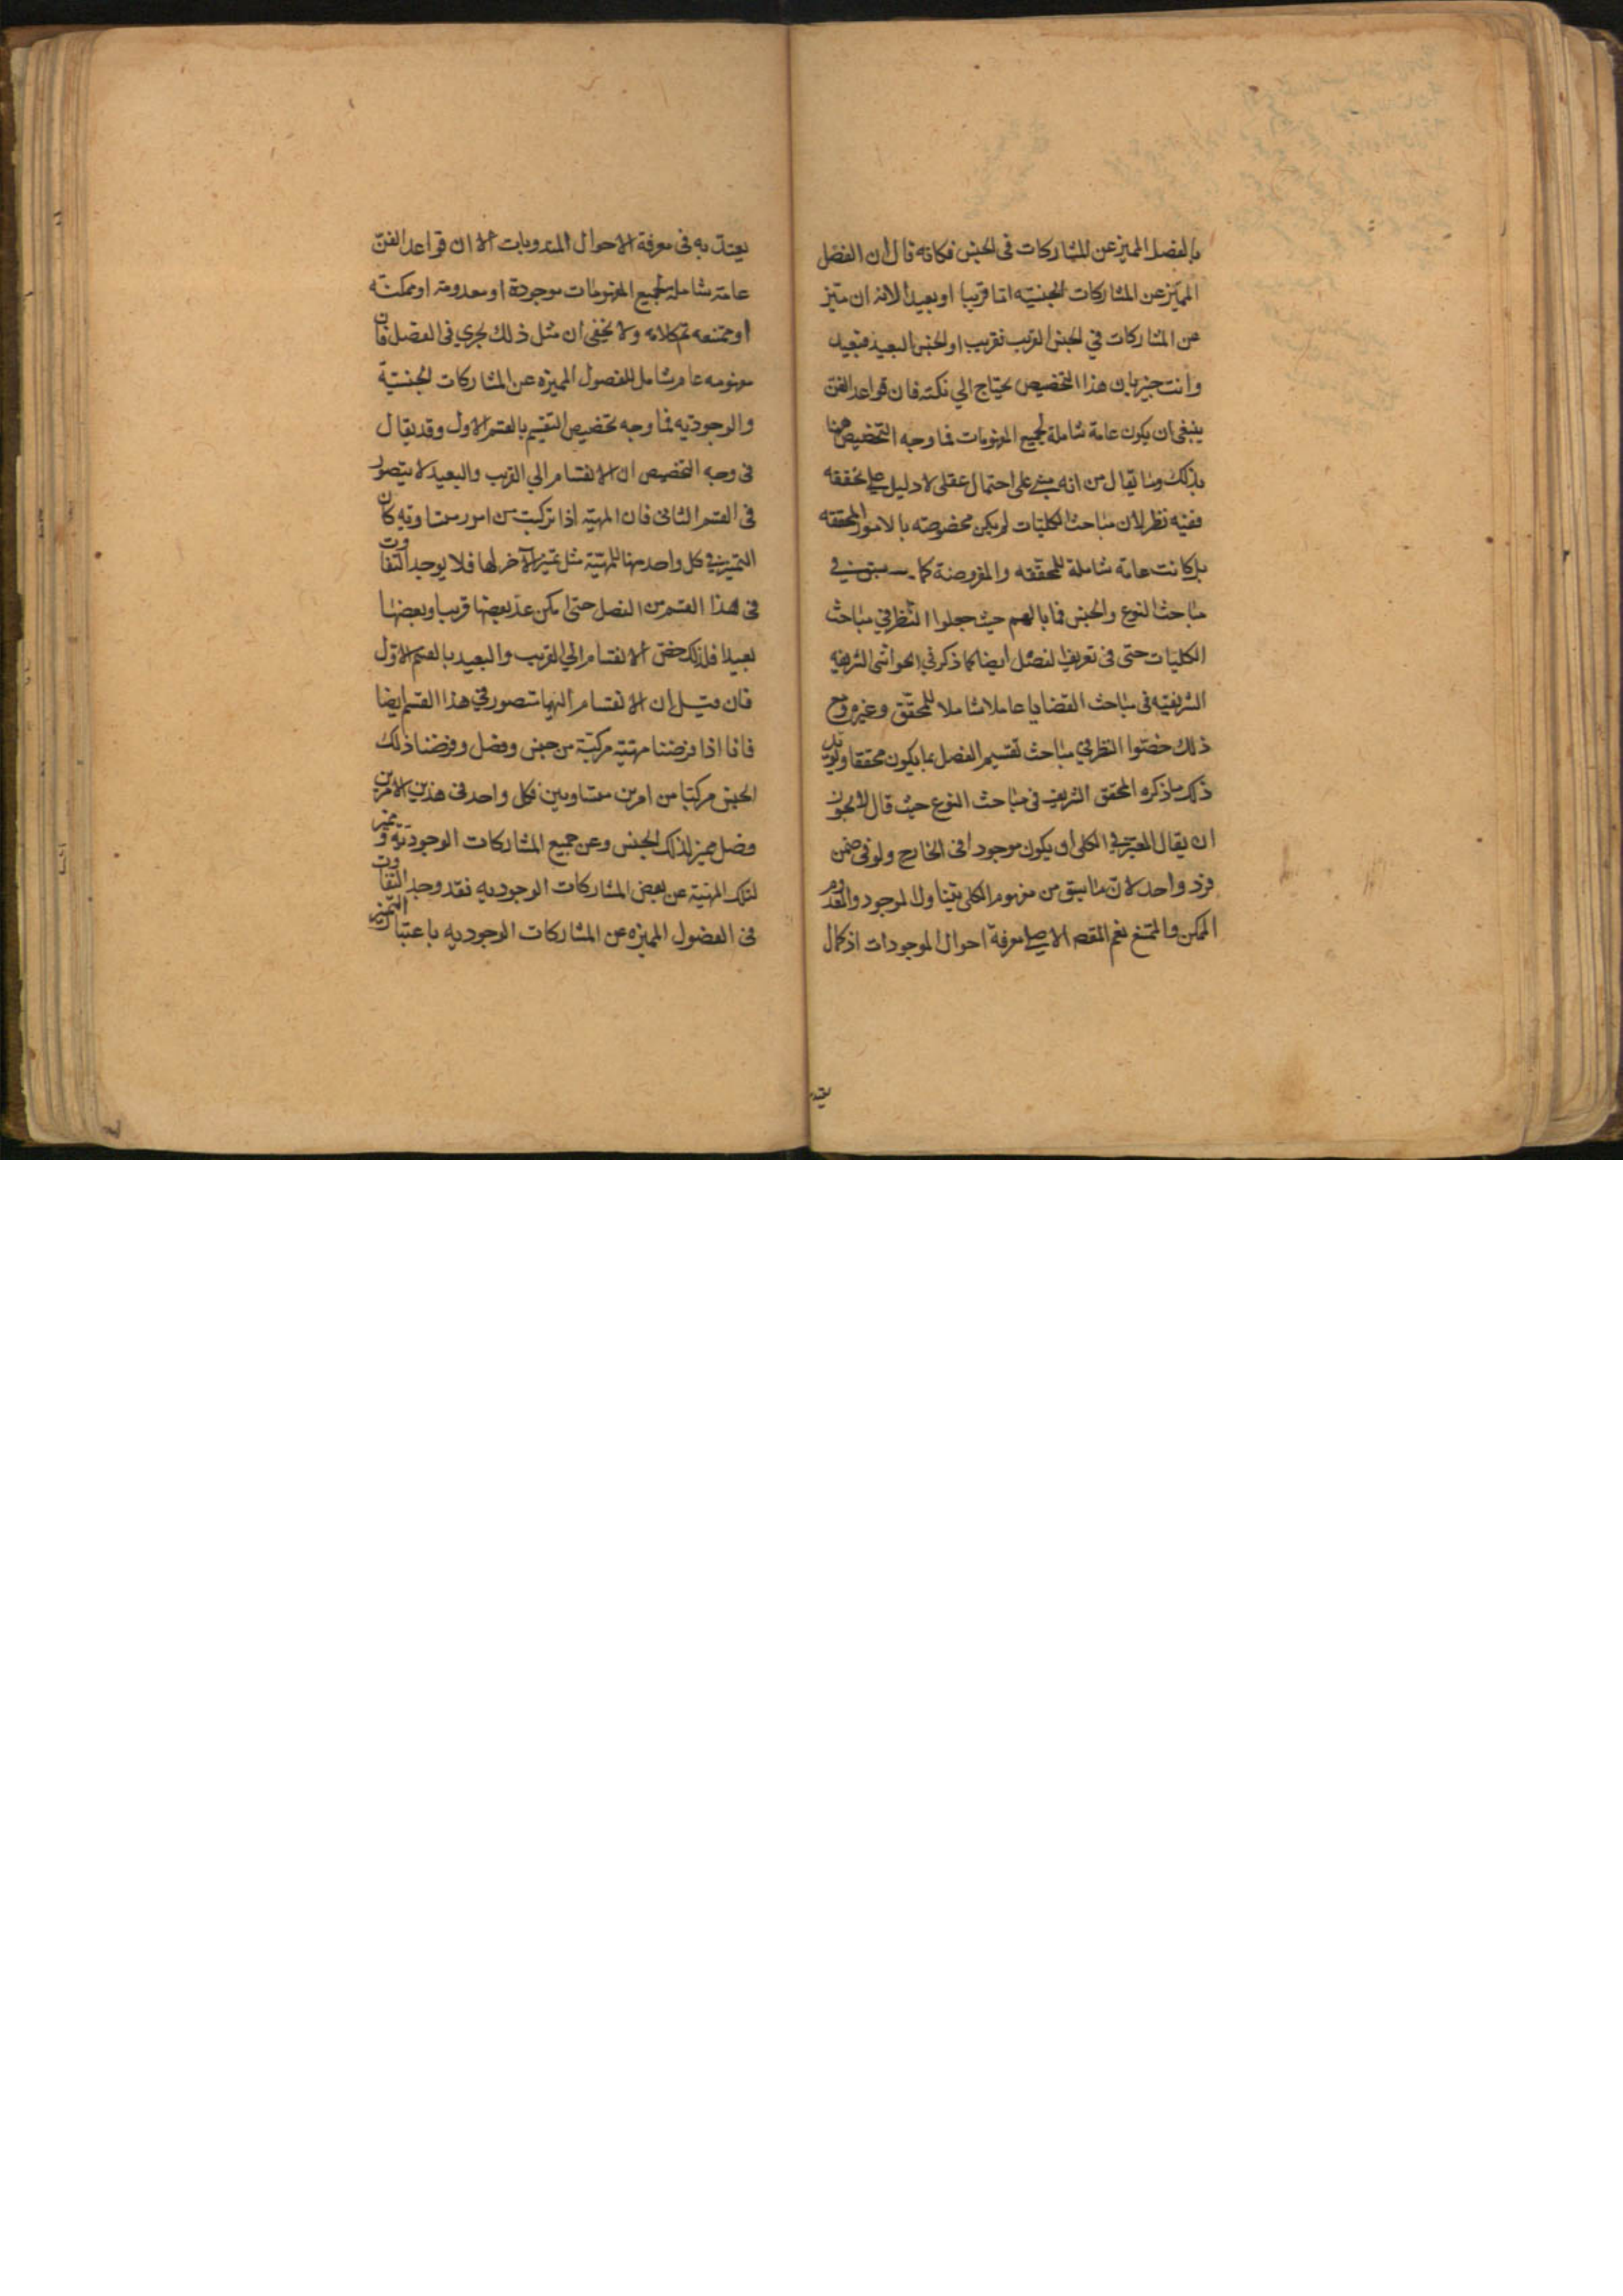 بالفصل المميز عن المشاركات في الجنس فكانه قال ان الفصل
المميز عن المشاركات الجنسيه اما قريبا او بعيدا لانه ان ميز
عن المشاركات في الجنس القريب فقريب او الجنس البعيد فبعيد
وانت خبير بان هذا التخصيص يحتاج الي نكته فان قواعد الفن
ينبغي ان يكون عامة شاملة لجميع المفهومات فما وجه التخصيص هنا
بذلك وما يقال من انه مبني على احتمال عقلي لا دليل على تحققه
ففيه نظر لان مباحث الكليات لم يكن مخصوصه بالامور المحققه
بل كانت عامة شاملة للمحققه والمفروضة كما سبق في
مباحث النوع والجنس فما بالهم حيث جعلوا النظر في مباحث
الكليات حتى في تعريف الفصل ايضا كما ذكر في الحواشي الشريفه
الشريفيه في مباحث القضايا عاملا شاملا للمحقق وغيره ومع
ذلك خصوا النظر في مباحث تقسيم الفصل بما يكون محققا ويويد
ذلك ما ذكره المحقق الشريف في مباحث النوع حيث قال لا يجوز
ان يقال المعتبر في الكلي ان يكون موجودا في الخارج ولو في ضمن
فرد واحد لان ما سبق من مفهوم الكلي يتناول الموجود والمعدوم
الممكن والممتنع نعم المقصد الاصلي معرفة احوال الموجودات اذ كمال
يعتد
يعتد به في معرفة الاحوال المعدومات الا ان قواعد الفن
عامة شاملة لجميع المفهومات موجودة او معدومة او ممكنة
او ممتنعه تم كلامه ولا يخفى ان مثل ذلك يجري في الفصل فان
مفهومه عام شامل للفصول المميزه عن المشاركات الجنسية
والوجوديه فما وجه تخصيص التقسيم بالقسم الاول وقد يقال
في وجه التخصيص ان الانقسام الي القريب والبعيد لا يتصور
في القسم الثاني فان المهية اذا تركبت من امور متساويه كان
التمييز في كل واحد منها للمهية مثل تميز الآخر لها فلا يوجد التفاوت
في هذا القسم من الفصل حتى امكن عد بعضها قريبا وبعضها
بعيدا فلذلك خص الانقسام الي القريب والبعيد بالقسم الاول
فان قيل ان الانقسام اليهما متصور في هذا القسم ايضا
فانا اذا فرضنا مهية مركبة من جنس وفصل وفرضنا ذلك
الجنس مركبا من امرين متساويين فكل واحد في هذين الامرين
فصل مميز لذلك الجنس وعن جميع المشاركات الوجودية ومميز
لتلك المهية عن بعض المشاركات الوجوديه فقد وجد التفاوت
في الفصول المميزه عن المشاركات الوجوديه باعتبار التميز